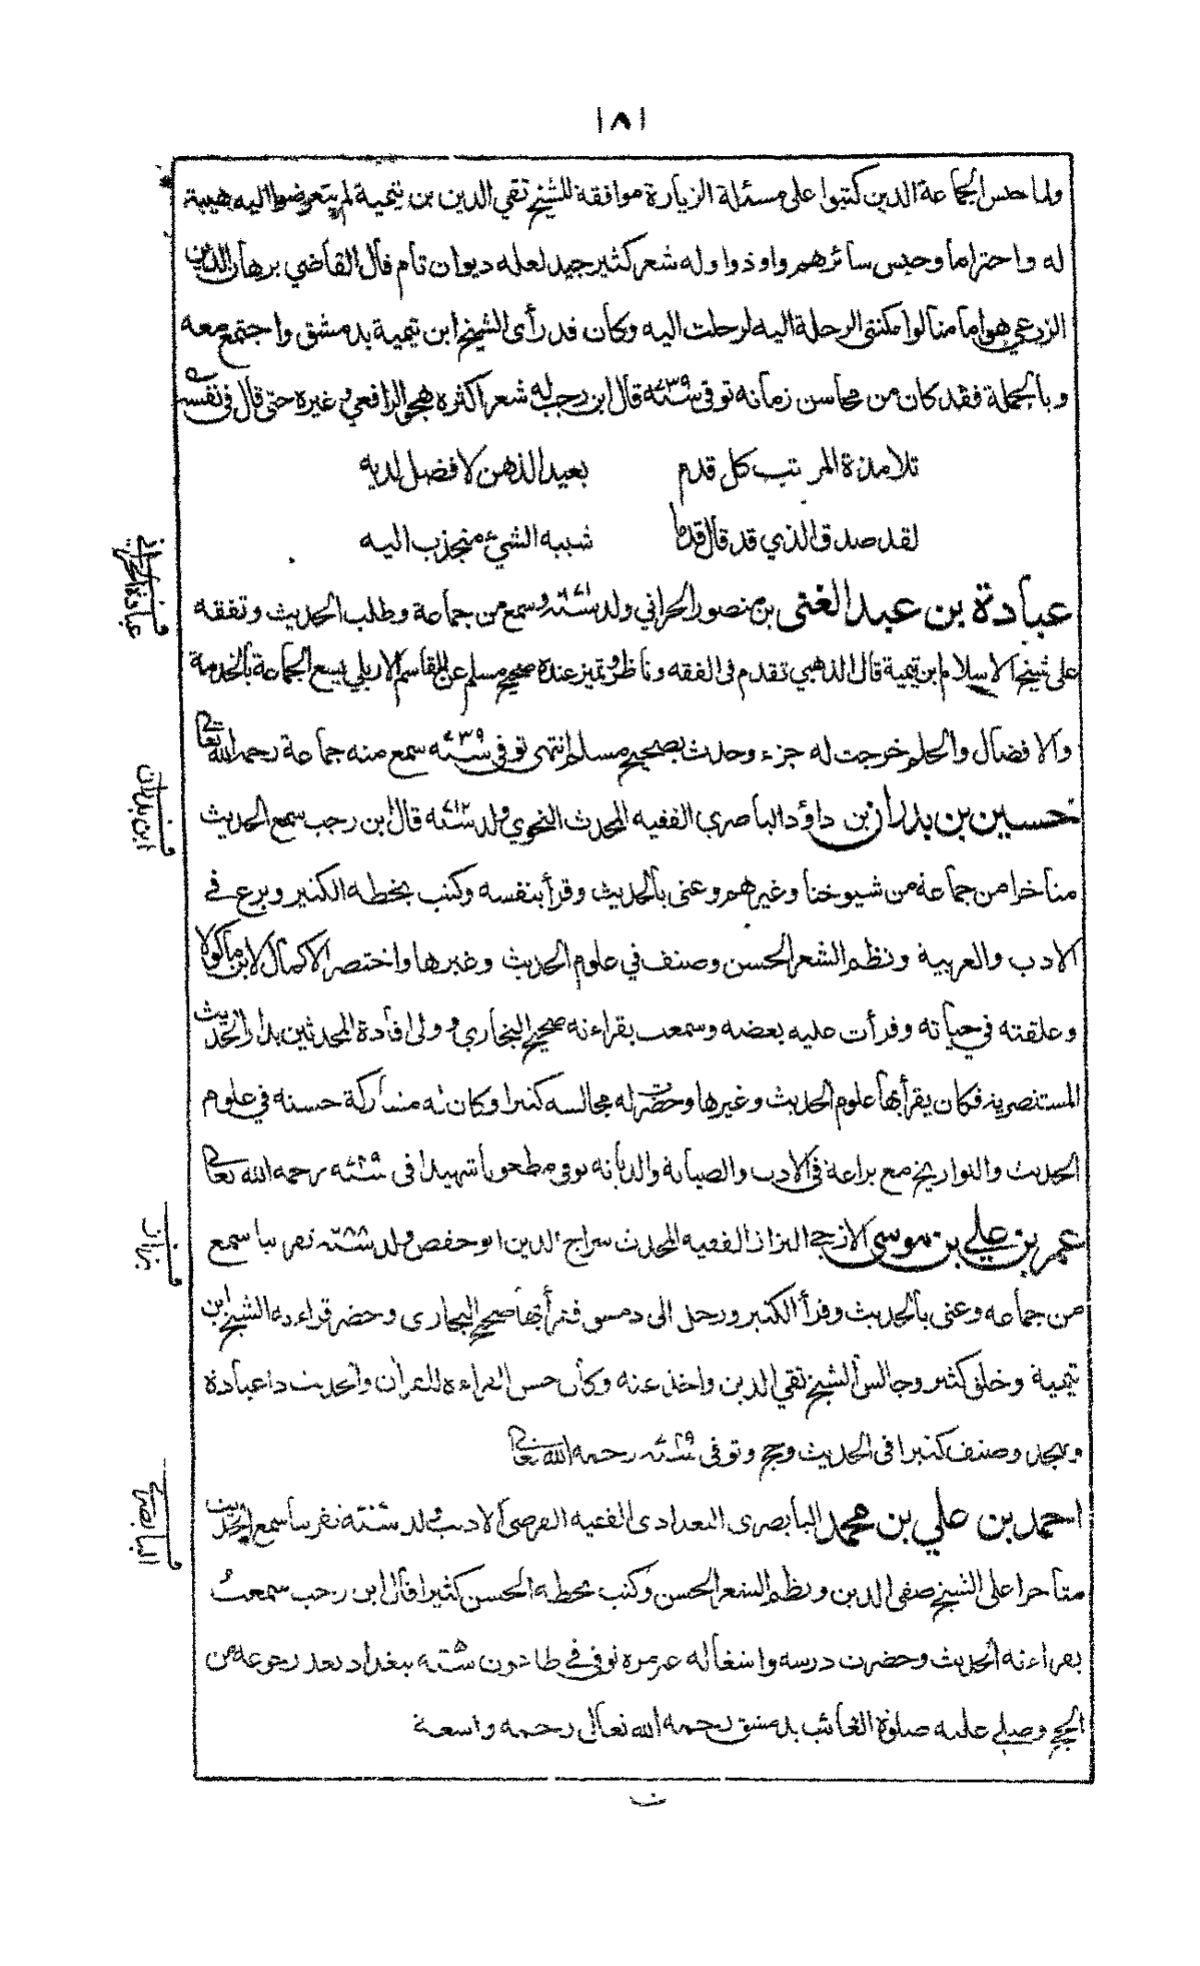 ١٨١
ولما حبس الجماعة الذين كتبوا على مسئلة الزيارة موافقة للشيخ تقي الدين بن تيمية لم يتعرضوا اليه هيبة
له واحتراما وحبس سائرهم واوذوا وله شعر كثير جيد لعله ديوان تام قال القاضي برهان الدين
الزرعي هو امامنا لو امكنتني الرحلة اليه لرحلت اليه وكان قد رأى الشيخ ابن تيمية بدمشق واجتمع معه
وبالجملة فقد كان من محاسن زمانه توفي سنة ٧٣٩ قال ابن رجب له شعر اكثره هجو الرافعي وغيره حتى قال في نفسه
تلامذة المرتب كل قدم بعيد الذهن لا فضل لديه
لقد صدق الذي قد قال قدما شبيه الشيء منجذب اليه
عبادة بن عبد الغني بن منصور الحراني ولد سنة وسمع من جماعة وطلب الحديث وتفقه
على شيخ الاسلام ابن تيمية قال الذهبي تقدم في الفقه وناظر وتميز عنده صحيح مسلم عن القاسم الاربلي يسع الجماعة بالخدمة
والافضال والحلم خرجت له جزء وحدث بصحيح مسلم انتهى توفي سنة ٧٣٩ سمع منه جماعة رحمه الله تعالى
حسين بن بدران بن داؤد الباصري الفقيه المحدث النحوي ولد سنة ٧١٢ قال ابن رجب سمع الحديث
متأخرا من جماعة من شيوخنا وغيرهم وعنى بالحديث وقرأ بنفسه وكتب بخطه الكثير وبرع في
الادب والعربية ونظم الشعر الحسن وصنف في علوم الحديث وغيرها واختصر الاكمال لابن ماكولا
وعلقته في حياته وقرأت عليه بعضه وسمعت بقراءته صحيح البخاري وولي افادة المحدثين بدار الحديث
المستنصرية فكان يقرأ بها علوم الحديث وغيرها وحضرت له مجالسه كثيرا وكان له مشاركة حسنه في علوم
الحديث والتواريخ مع براعة في الادب والصيانة والديانة توفي مطعونا شهيدا في سنة ٧٤٩ رحمه الله تعالى
عمر بن علي بن موسى الازجي البزاز الفقيه المحدث سراج الدين ابو حفص ولد سنة تقريبا سمع
من جماعة وعنى بالحديث وقرأ الكثير ورحل الى دمشق فقرأ بها صحيح البخاري وحضر قراءته الشيخ ابن
تيمية وخلق كثير وجالس الشيخ تقي الدين واخذ عنه وكان حسن القراءة للقرآن والحديث ذا عبادة
وتهجد وصنف كثيرا في الحديث وحج وتوفي سنة ٧٤٩ رحمه الله تعالى
احمد بن علي بن محمد البابصري البغدادي الفقيه الفرضي الاديب ولد سنة تقريبا سمع الحديث
متأخرا على الشيخ صفي الدين ونظم الشعر الحسن وكتب بخطه الحسن كثيرا قال ابن رجب سمعت
بقراءته الحديث وحضرت درسه واشغاله غير مرة توفي في طاعون سنة ببغداد بعد رجوعه من
الحج وصلي عليه صلوة الغائب بدمشق رحمه الله تعالى رحمه واسعة
عبادة الحراني
ابن بدران
بزاز
البابصري